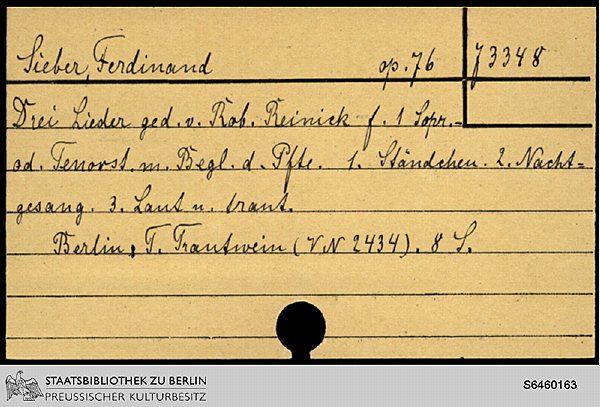 Sieber, Ferdinand op. 76 J 3348
Drei Lieder ged. v. Rob. Reinick f. 1 Sopr.-
od. Tenorst. m. Begl. d. Pfte. 1. Ständchen. 2. Nacht-
gesang. 3. Laut u. traut.
Berlin, T. Trautwein (VN 2434). 8 S.
STAATSBIBLIOTHEK ZU BERLIN
PREUSSISCHER KULTURBESITZ
S6460163